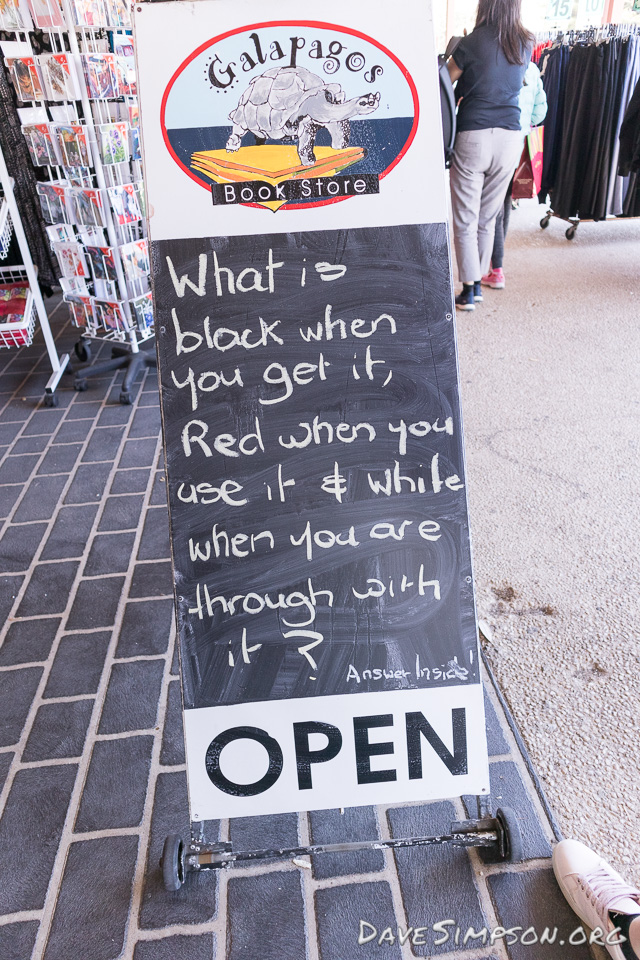 Galapagos
Book Store
What is
black when
you get it,
Red when you
use it & white
when you are
through with
it?
Answer Inside!
OPEN
15
10
DaveSimpson.org